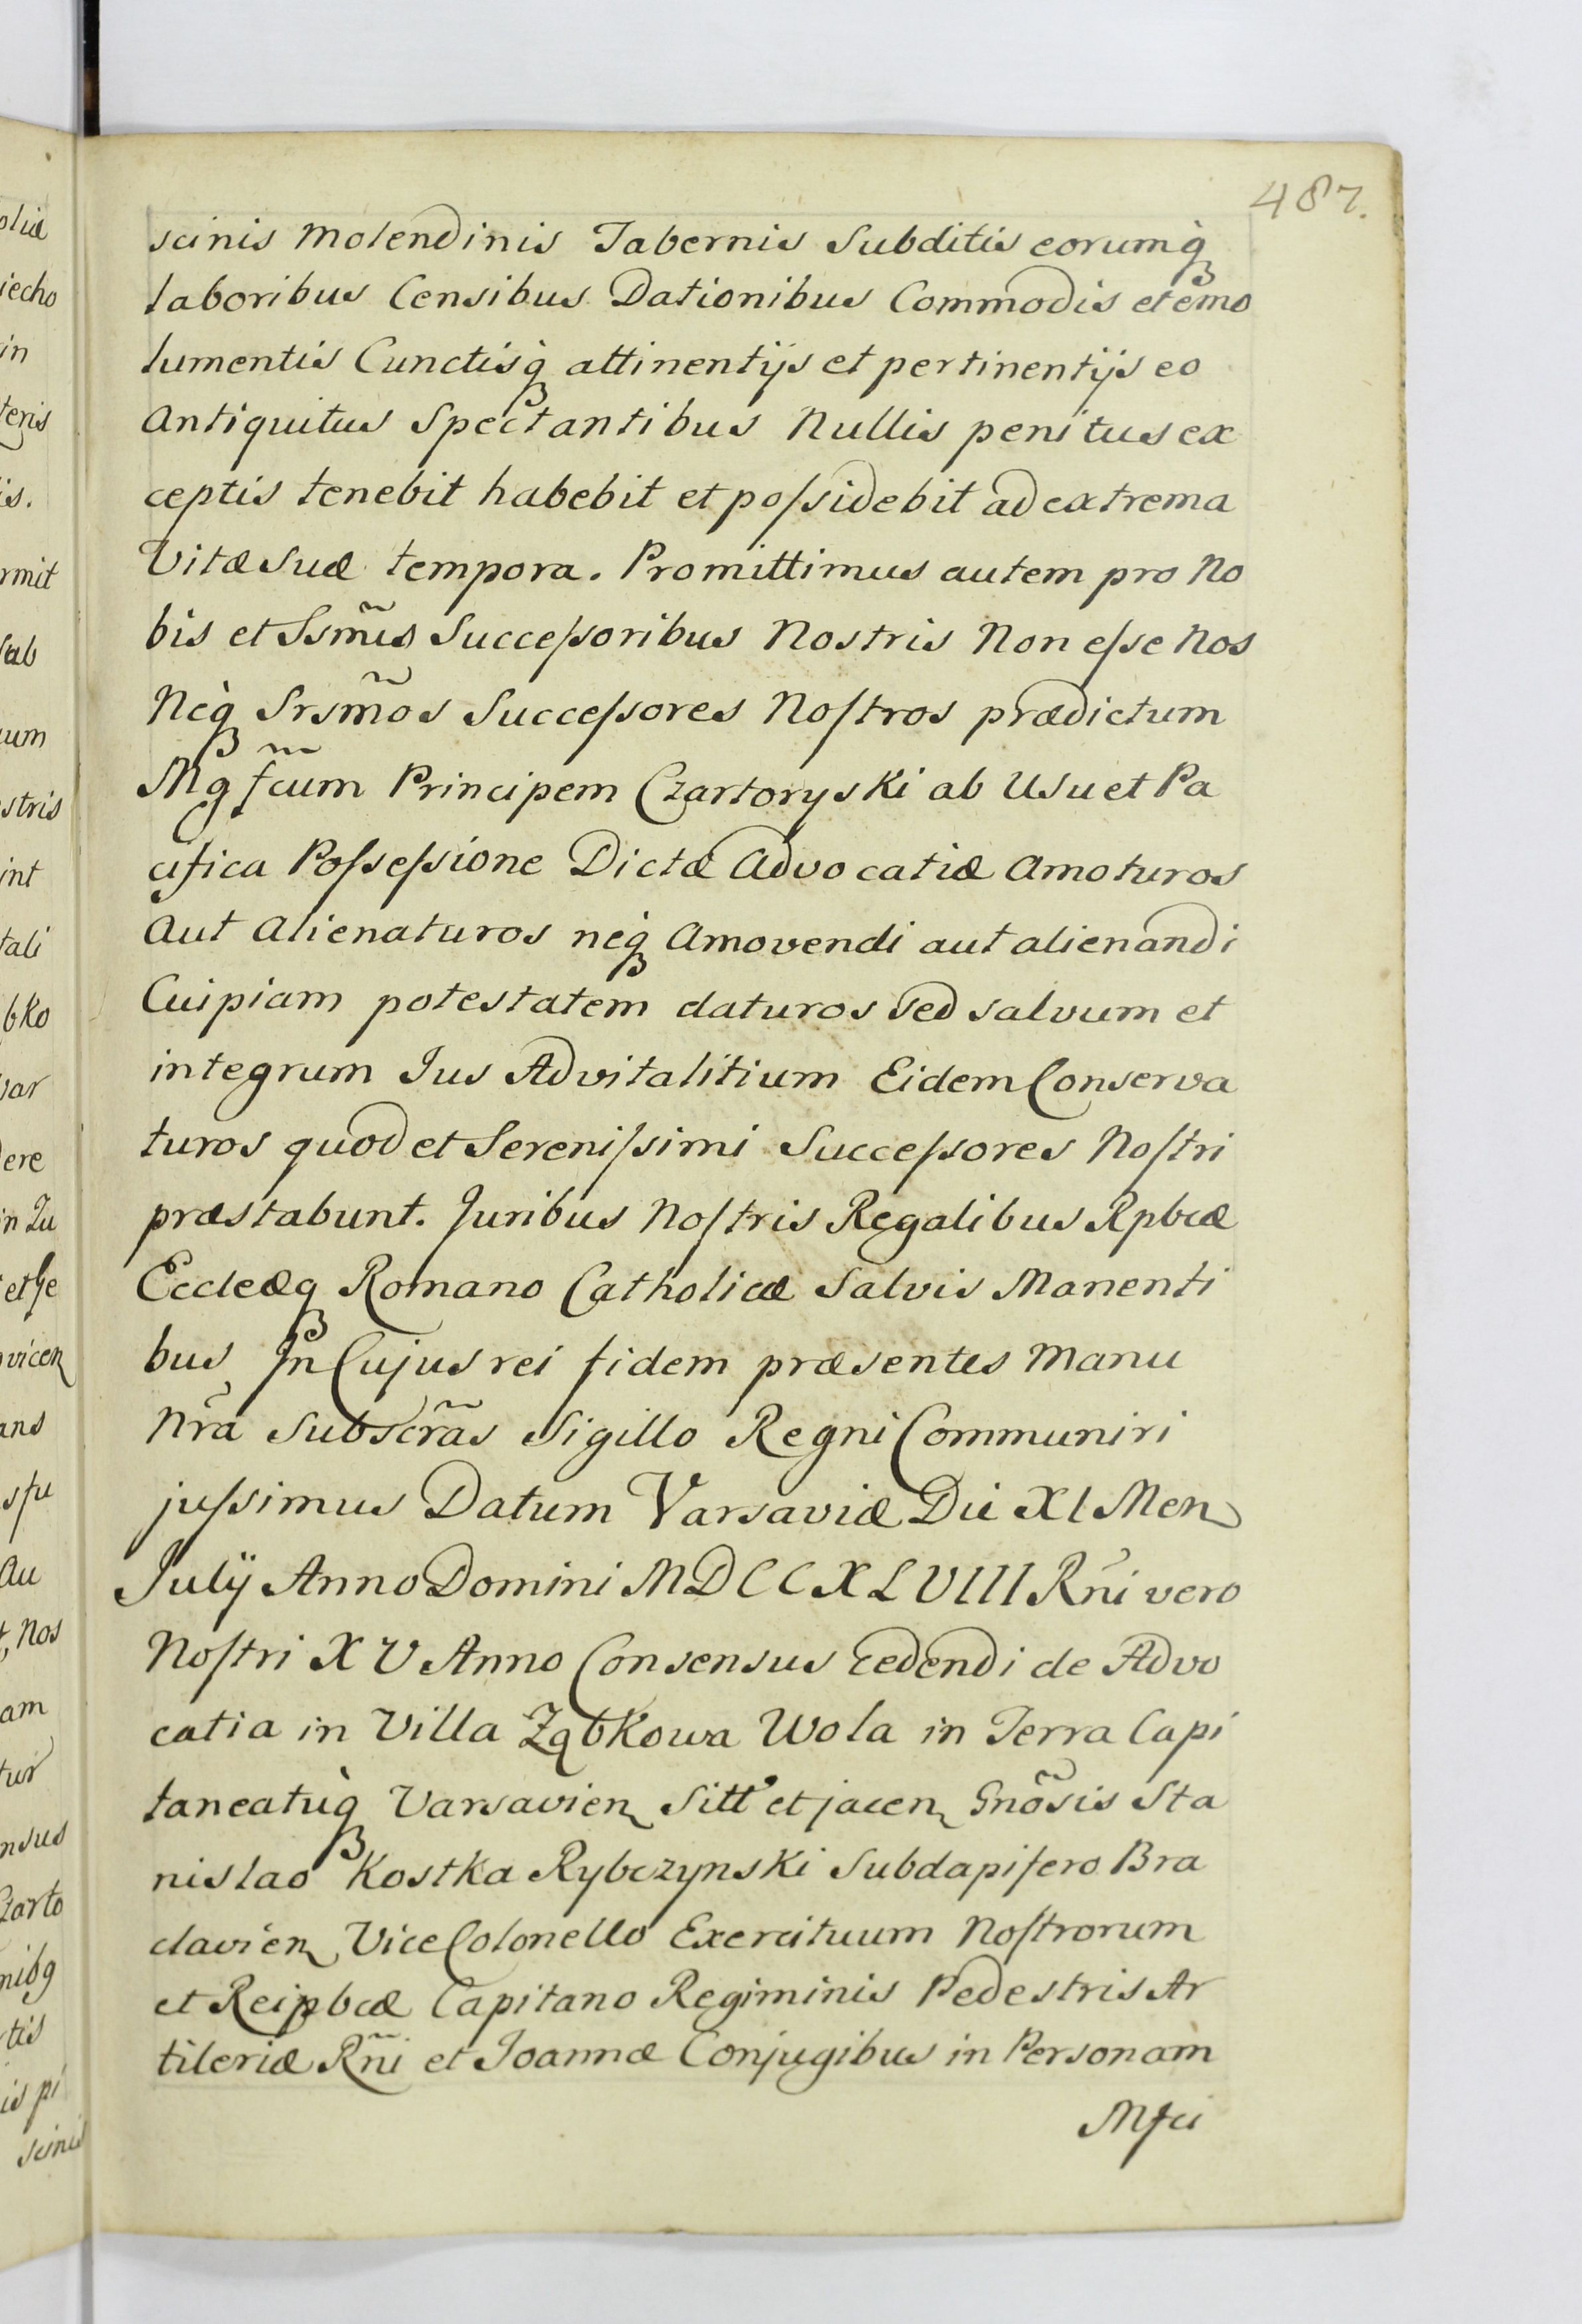 487.
scinis Molendinis Tabernis Subditis eorumq̀
laboribus Censibus Dationibus Commodis et emo
lumentis Cunctisq̀ attinentijs et pertinentijs eo
Antiquitus Spectantibus Nullis penitus ex
ceptis tenebit habebit et poſsidebit ad extrema
Vitæ Suæ tempora. Promittimus autem pro No
bis et Ssm̃is Succeſsoribus Nostris Non eſse Nos
Nèq Srsm̃os Succeſsores Noſtros prædictum
Mgf̃cum Principem Czartoryski ab Usu et Pa
cifica Poſseſsione Dictæ Advocatiæ Amoturos
Aut Alienaturos neq̀ Amovendi aut alienandi
Cuipiam potestatem daturos sed salvum et
integrum Jus Advitalitium Eidem Conserva
turos quod et Sereniſsimi Succeſsores Noſtri
præstabunt. Juribus Noſtris Regalibus Rpbcæ
Eccleæq Romano Catholicæ Salvis Manenti
bus In Cujus rei fidem præsentes Manu
Nr̃a Subscr̃as Sigillo Regni Communiri
juſsimus Datum Varsaviæ Die XI Men
Julÿ Anno Domini MDCCXLVIII Rñi vero
Noſtri XV Anno Consensus cedendi de Advo
catia in Villa Ząbkowa Wola in Terra Capi
taneatùq Varsavien Sitt et jacen Gnõsis Sta
nislao Kostka Rybczynski Subdapifero Bra
clavien Vice Colonello Exercituum Noſtrorum
et Reipbcæ Capitano Regiminis Pedestris Ar
tileriæ Rñi et Joannæ Conjugibus in Personam
Mfci
oliæ
iecho
in
teris
is.
rmit
ſab
um
stris
int
tali
bko
var
dere
in Zu
et Ge
vicen
ans
sfu
Au
t, Nos
am
tur
nsus
Czarto
nibq
tis
is pi
scinis